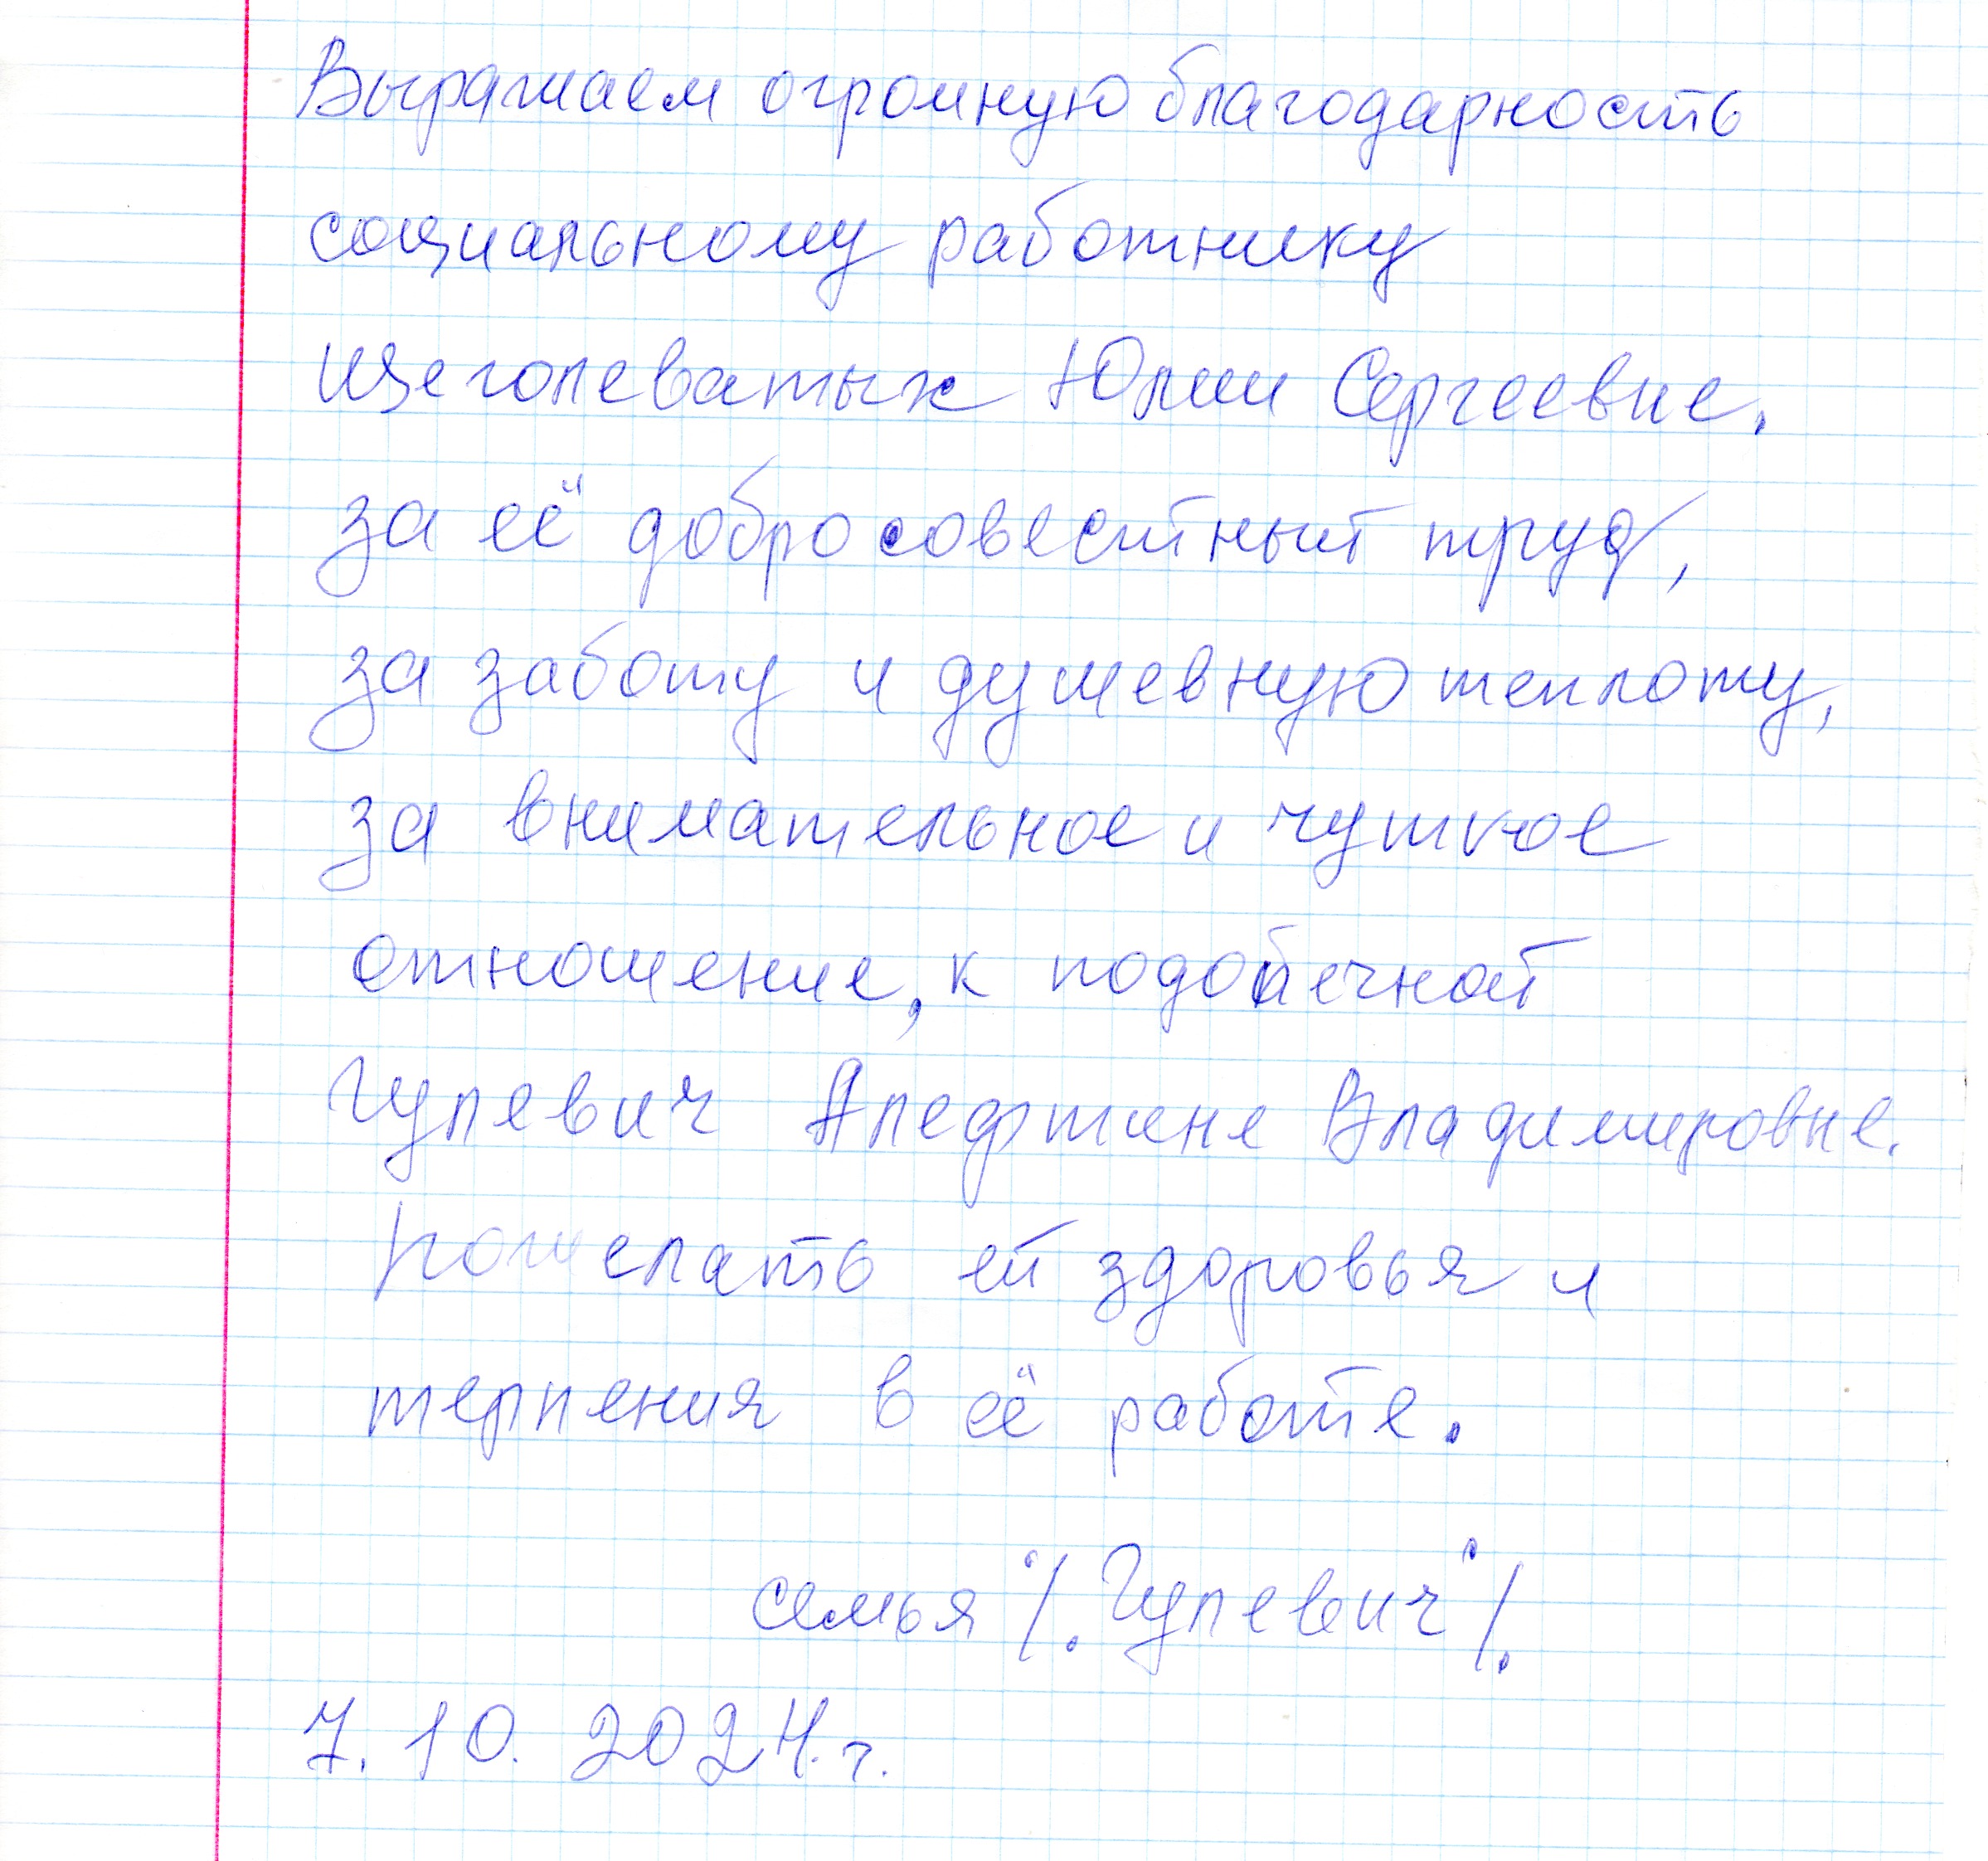 Выражаем огромную благодарность
социальному работнику
Щеголеватых Юлии Сергеевне.
за её добросовестный труд,
за заботу и душевную теплоту,
за внимательное и чуткое
отношение, к подопечной
Гулевич Алефтине Владимировне.
пожелать ей здоровья и
терпения в её работе.
семья ./. Гулевич ./.
7. 10. 2024. г.